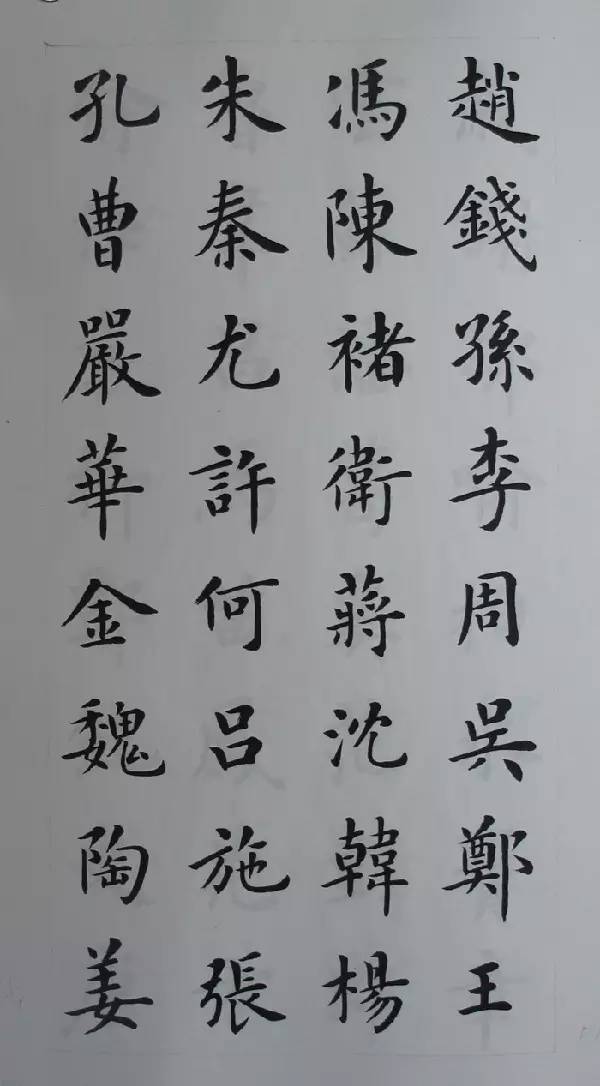 趙錢孫李周吳鄭王
馮陳褚衛蔣沈韓楊
朱秦尤許何呂施張
孔曹嚴華金魏陶姜